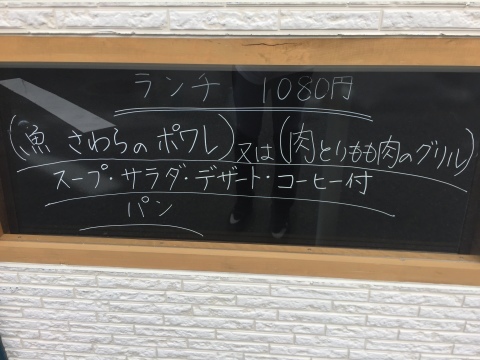 ランチ 1080円
(魚 さわらのポワレ)又は(肉とりもも肉のグリル)
スープ・サラダ・デザート・コーヒー付
パン